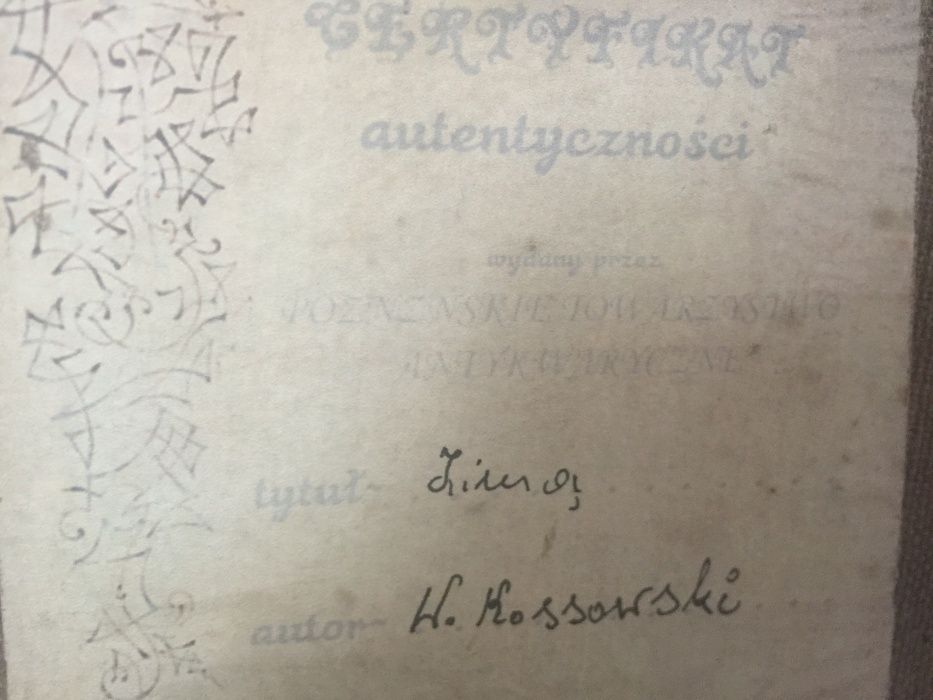 CERTYFIKAT
autentyczności
wydany przez
POZNZNSKIE TOWARZYSTWO
ANTYKWARYCZNE
tytuł- Zimą
autor- W. Kossowski